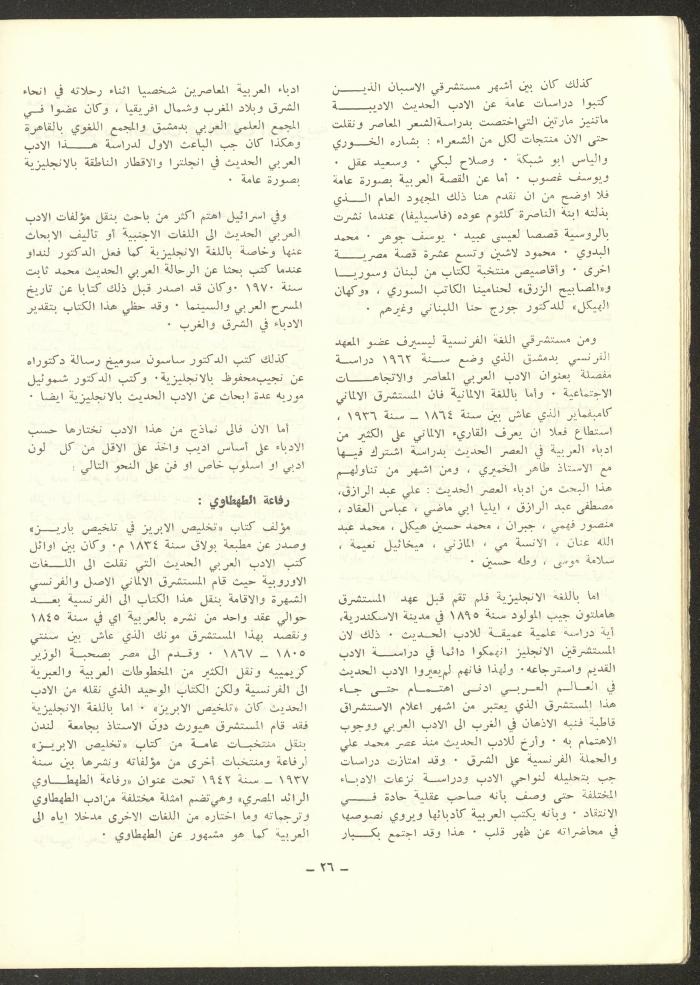 كذلك كان بين أشهر مستشرقي الاسبان الذيـــن
كتبوا دراسات عامة عن الادب الحديث الاديبـــة
ماتنيز مارتين التي اختصت بدراسةالشعر المعاصر ونقلت
حتى الان منتجات لكل من الشعراء : بشاره الخـــوري
والياس ابو شبكة ٠ وصلاح لبكي ٠ وسعيد عقل ٠
ويوسف غصوب ٠ أما عن القصة العربية بصورة عامة
فلا اوضح من ان نقدم هنا ذلك المجهود العام الـــذي
بذلته ابنة الناصرة كلثوم عوده (فاسيليفا) عندما نشرت
بالروسية قصصا لعيسى عبيد ٠ يوسف جوهر ٠ محمد
البدوي ٠ محمود لاشين وتسع عشرة قصة مصريـــة
اخرى ٠ وأقاصيص منتخبة لكتاب من لبنان وسوريـــا
و«المصابيح الزرق» لحنامينا الكاتب السوري ، «وكهان
الهيكل» للدكتور جورج حنا اللبناني وغيرهم ٠
ومن مستشرقي اللغة الفرنسية ليسيرف عضو المعهد
الفرنسي بدمشق الذي وضع سنـــة ١٩٦٢ دراســـة
مفصلة بعنوان الادب العربي المعاصر والاتجاهـــات
الاجتماعية ٠ وأما باللغة الالمانية فان المستشرق الالماني
كامبفماير الذي عاش بين سنة ١٨٦٤ ــ سنة ١٩٣٦ ،
استطاع فعلا ان يعرف القاريء الالماني على الكثير من
ادباء العربية في العصر الحديث بدراسة اشترك فيـــها
مع الاستاذ طاهر الخميري ، ومن اشهر من تناولهم
هذا البحث من ادباء العصر الحديث : علي عبد الرازق،
مصطفى عبد الرازق ، ايليا ابي ماضي ، عباس العقاد ،
منصور فهمي ، جبران ، محمد حسين هيكل ، محمد عبد
الله عنان ، الانسة مي ، المازني ، ميخائيل نعيمة ،
سلامة موسى ، وطه حسين ٠
اما باللغة الانجليزية فلم تقم قبل عهد المستشرق
هاملتون جيب المولود سنة ١٨٩٥ في مدينة الاسكندرية،
أية دراسة علمية عميقة للادب الحـديث ٠ ذلك لان
المستشرقين الانجليز انهمكوا دائما في دراســـة الادب
القديم واسترجاعه٠ ولهذا فانهم لم يعيروا الادب الحديث
في العـــالم العـــربي ادنى اهتمـــام حتـــى جـــاء
هذا المستشرق الذي يعتبر من اشهر اعلام الاستشراق
قاطبة فنبه الاذهان في الغرب الى الادب العربي ووجوب
الاهتمام به ٠ وأرخ للادب الحديث منذ عصر محمد علي
والحملة الفرنسية على الشرق ٠ وقد امتازت دراسات
جب بتحليله لنواحي الادب ودراســـة نزعات الادبـــاء
المختلفة حتى وصف بأنه صاحب عقلية حادة فـــي
الانتقاد ٠ وبأنه يكتب العربية كادبائها ويروي نصوصها
في محاضراته عن ظهر قلب ٠ هذا وقد اجتمع بكـــبار
ادباء العربية المعاصرين شخصيا اثناء رحلاته في انحاء
الشرق وبلاد المغرب وشمال افريقيا ، وكان عضوا فـــي
المجمع العلمي العربي بدمشق والمجمع اللغوي بالقاهرة
وهكذا كان جب الباعث الاول لدراسة هـــذا الادب
العربي الحديث في انجلترا والاقطار الناطقة بالانجليزية
بصورة عامة ٠
وفي اسرائيل اهتم اكثر من باحث بنقل مؤلفات الادب
العربي الحديث الى اللغات الاجنبية أو تأليف الابحاث
عنها وخاصة باللغة الانجليزية كما فعل الدكتور لنداو
عندما كتب بحثا عن الرحالة العربي الحديث محمد ثابت
سنة ١٩٧٠ ٠وكان قد اصدر قبل ذلك كتابا عن تاريخ
المسرح العربي والسينما ٠ وقد حظي هذا الكتاب بتقدير
الادباء في الشرق والغرب ٠
كذلك كتب الدكتور ساسون سوميخ رسالة دكتوراه
عن نجيب محفوظ بالانجليزية٠ وكتب الدكتور شموئيل
موريه عدة ابحاث عن الادب الحديث بالانجليزية ايضا ٠
أما الان فالى نماذج من هذا الادب نختارها حسب
الادباء على أساس اديب واخذ على الاقل من كل لون
ادبي او اسلوب خاص او فن على النحو التالي :
رفاعة الطهطاوي :
مؤلف كتاب «تخليص الابريز في تلخيص باريـــز»
وصدر عن مطبعة بولاق سنة ١٨٣٤ م٠ وكان بين اوائل
كتب الادب العربي الحديث التي نقلت الى اللـــغات
الاوروبية حيث قام المستشرق الالماني الاصل والفرنسي
الشهرة والاقامة بنقل هذا الكتاب الى الفرنسية بعـــد
حوالي عقد واحد من نشره بالعربية اي في سنة ١٨٤٥
ونقصد بهذا المستشرق مونك الذي عاش بين سنتي
١٨٠٥ ــ ١٨٦٧ ٠ وقـدم الى مصر بصحبـة الوزير
كريمييه ونقل الكثير من المخطوطات العربية والعبرية
الى الفرنسية ولكن الكتاب الوحيد الذي نقله من الادب
الحديث كان «تلخيص الابريز» ٠ اما باللغة الانجليزية
فقد قام المستشرق هيورث دون الاستاذ بجامعة لندن
بنقل منتخبـــات عامـــة من كتاب «تخليص الابريـــز»
لرفاعة ومنتخبات أخرى من مؤلفاته ونشرها بين سنة
١٩٣٧ ــ سنة ١٩٤٢ تحت عنوان «رفاعة الطهطـــاوي
الرائد المصري» وهي تضم امثلة مختلفة من ادب الطهطاوي
وترجماته وما اختاره من اللغات الاخرى مدخلا اياه الى
العربية كما هو مشهور عن الطهطاوي ٠
ــ ٢٦ ــ